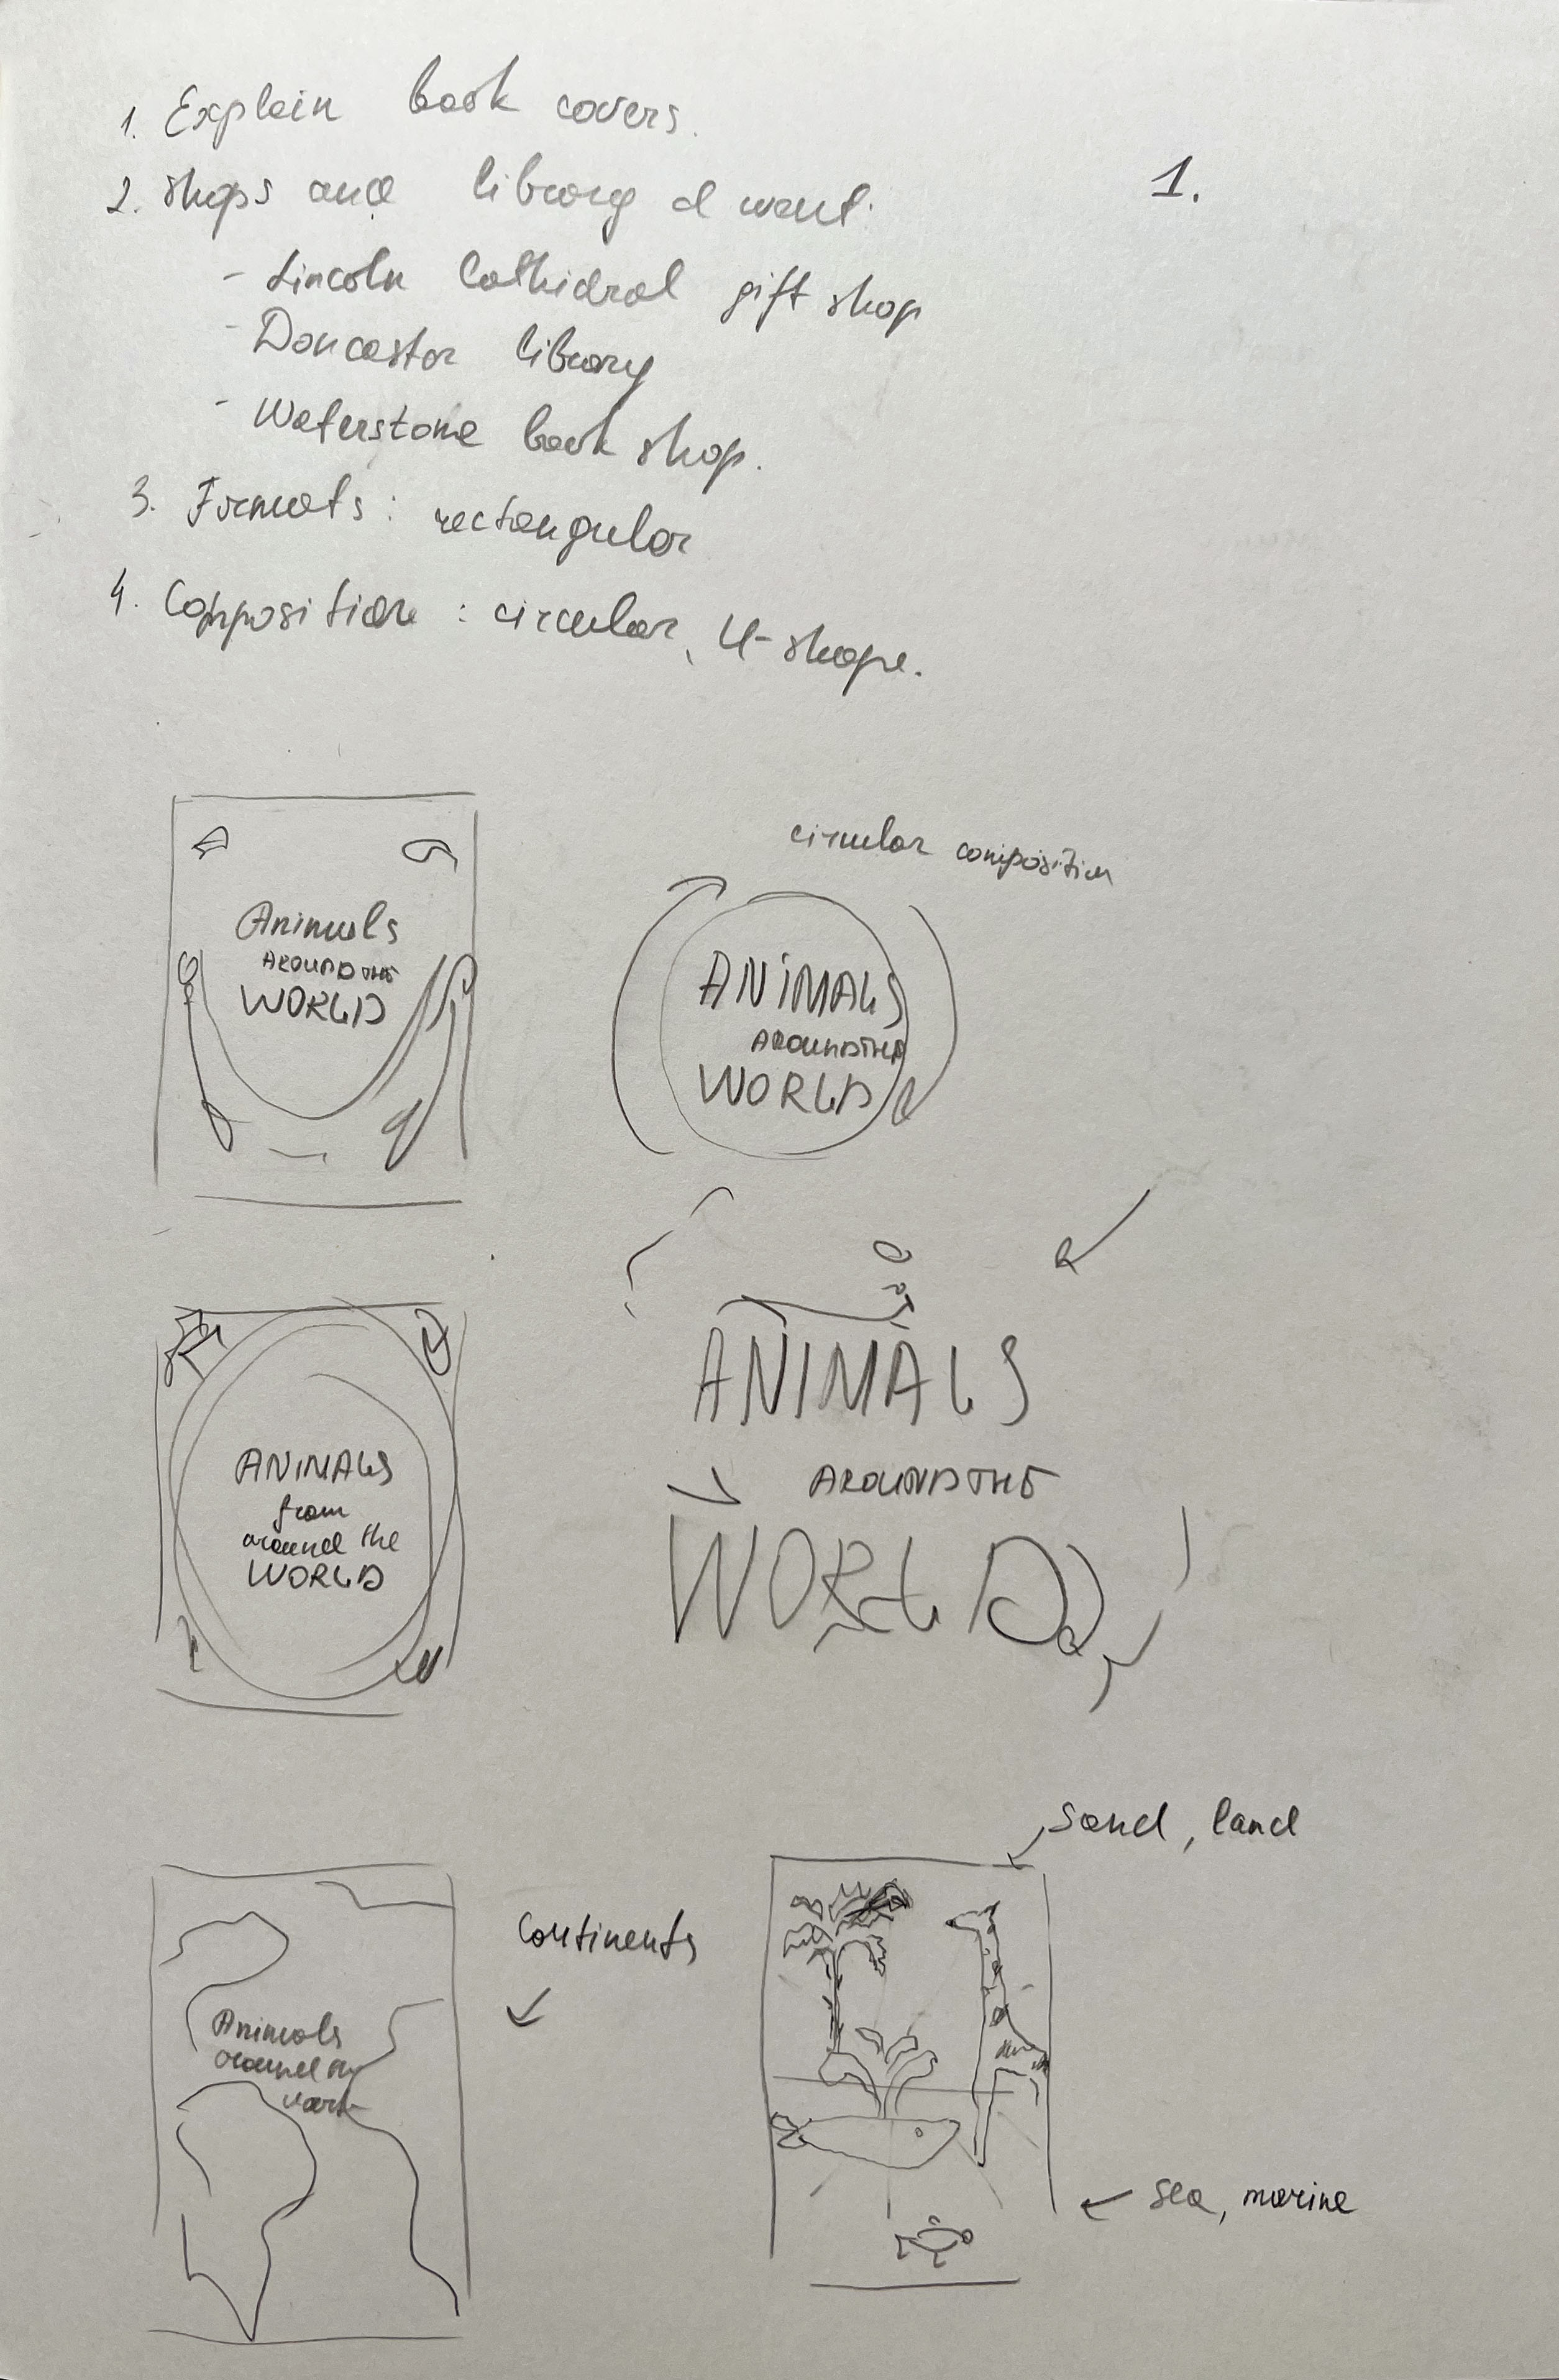 1. Explain book covers.
2. Shops and library I went:
1.
- Lincoln Cathidral gift shop
- Doncaster library
- Waterstone book shop.
3. Formats: rectangular
4. Composition: circular, U-shape.
circular composition
Animals
AROUND THE
WORLD
ANIMALS
AROUND THE
WORLD
ANIMALS
from
around the
WORLD
ANIMALS
AROUND THE
WORLD
Sand, land
Continents
Animals
around
sea, marine